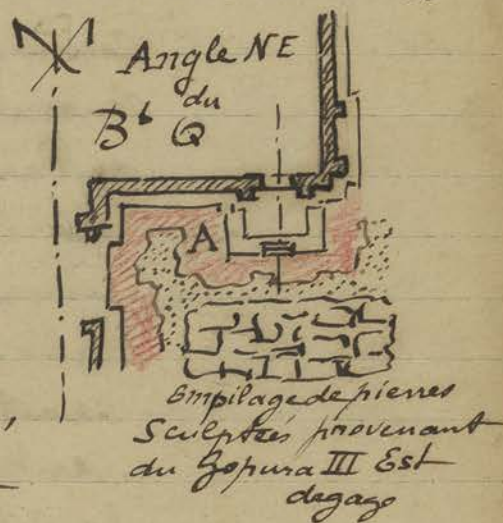 N
Angle NE
du
Bt Q
A
Empilage de pierres
Sculptées provenant
du Gopura III Est
degagé